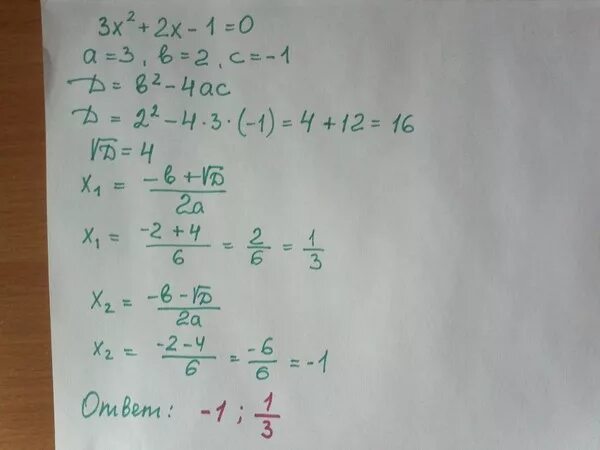 3x² + 2x - 1 = 0
a = 3, в = 2, c = -1
D = в² - 4ac
D = 2² - 4 · 3 · (-1) = 4 + 12 = 16
√D = 4
x₁ = (-в + √D)/2a
x₁ = (-2 + 4)/6 = 2/6 = 1/3
x₂ = (-в - √D)/2a
x₂ = (-2 - 4)/6 = -6/6 = -1
Ответ: -1 ; 1/3